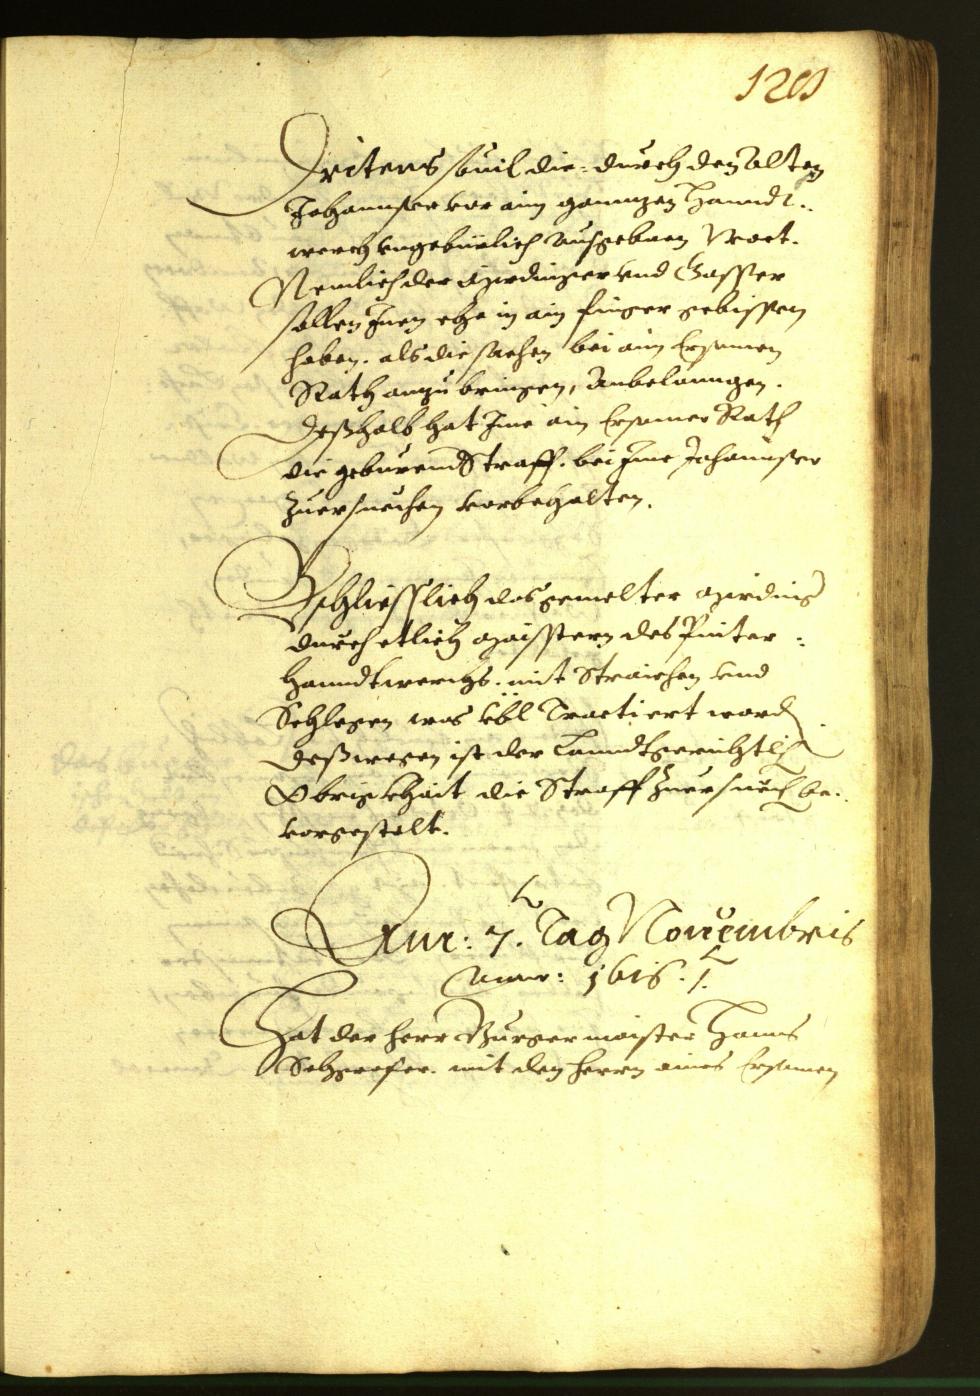 120
Dritens souil die: durch den Alten
Johannser vor aim ganntzen Hanndt:
werch vngebürlich ausgebnen Wort.
Nemlich der Mirdinger vnd Gasser
sollen Jnen ehe in ain finger gebissen
haben. als die sachen bei aim Ersamen
Rath anzubringen, Anbelanngen.
Desshalb hat Jme ain Ersamer Rath
die geburend Straff. bei Jme Johannser
Zuersuechen vorbehalten.
Beschliesslich das gemelter Mirding
durch etlich Maisstern des Pinter:
Hanndtwerchs. mit Straichen vnd
Schlegen was vbl Tractiert word.
Desswegen ist der Lanndtgerichtlich
Obrigkhait die Straff Zuersuech be:
vorgestelt.
Am: 7. Tag Nouembris
Anno: 1616.
Hat der Herr Burgermaister Hanns
Schgrafer. mit den Herrn aines Ersamen